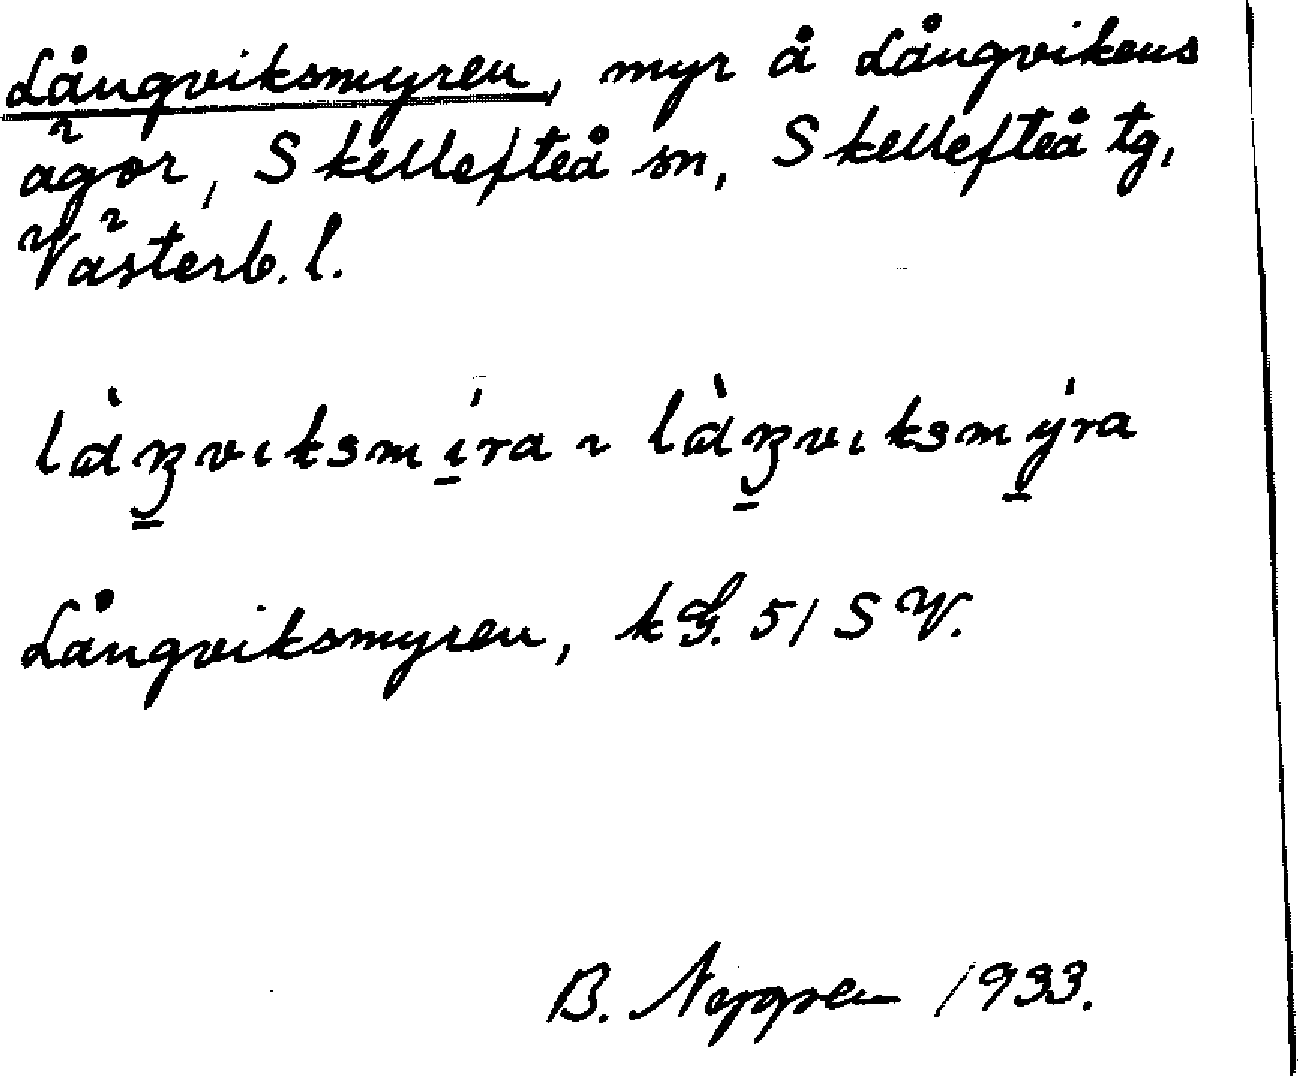 Långviksmyren, myr å Långvikens
ägor, Skellefteå sn, Skellefteå tg,
Västerb. l.
làŋviksmı́ra ~ làŋviksmýra
Långviksmyren, kG. 51 SV.
B. Nygren 1933.